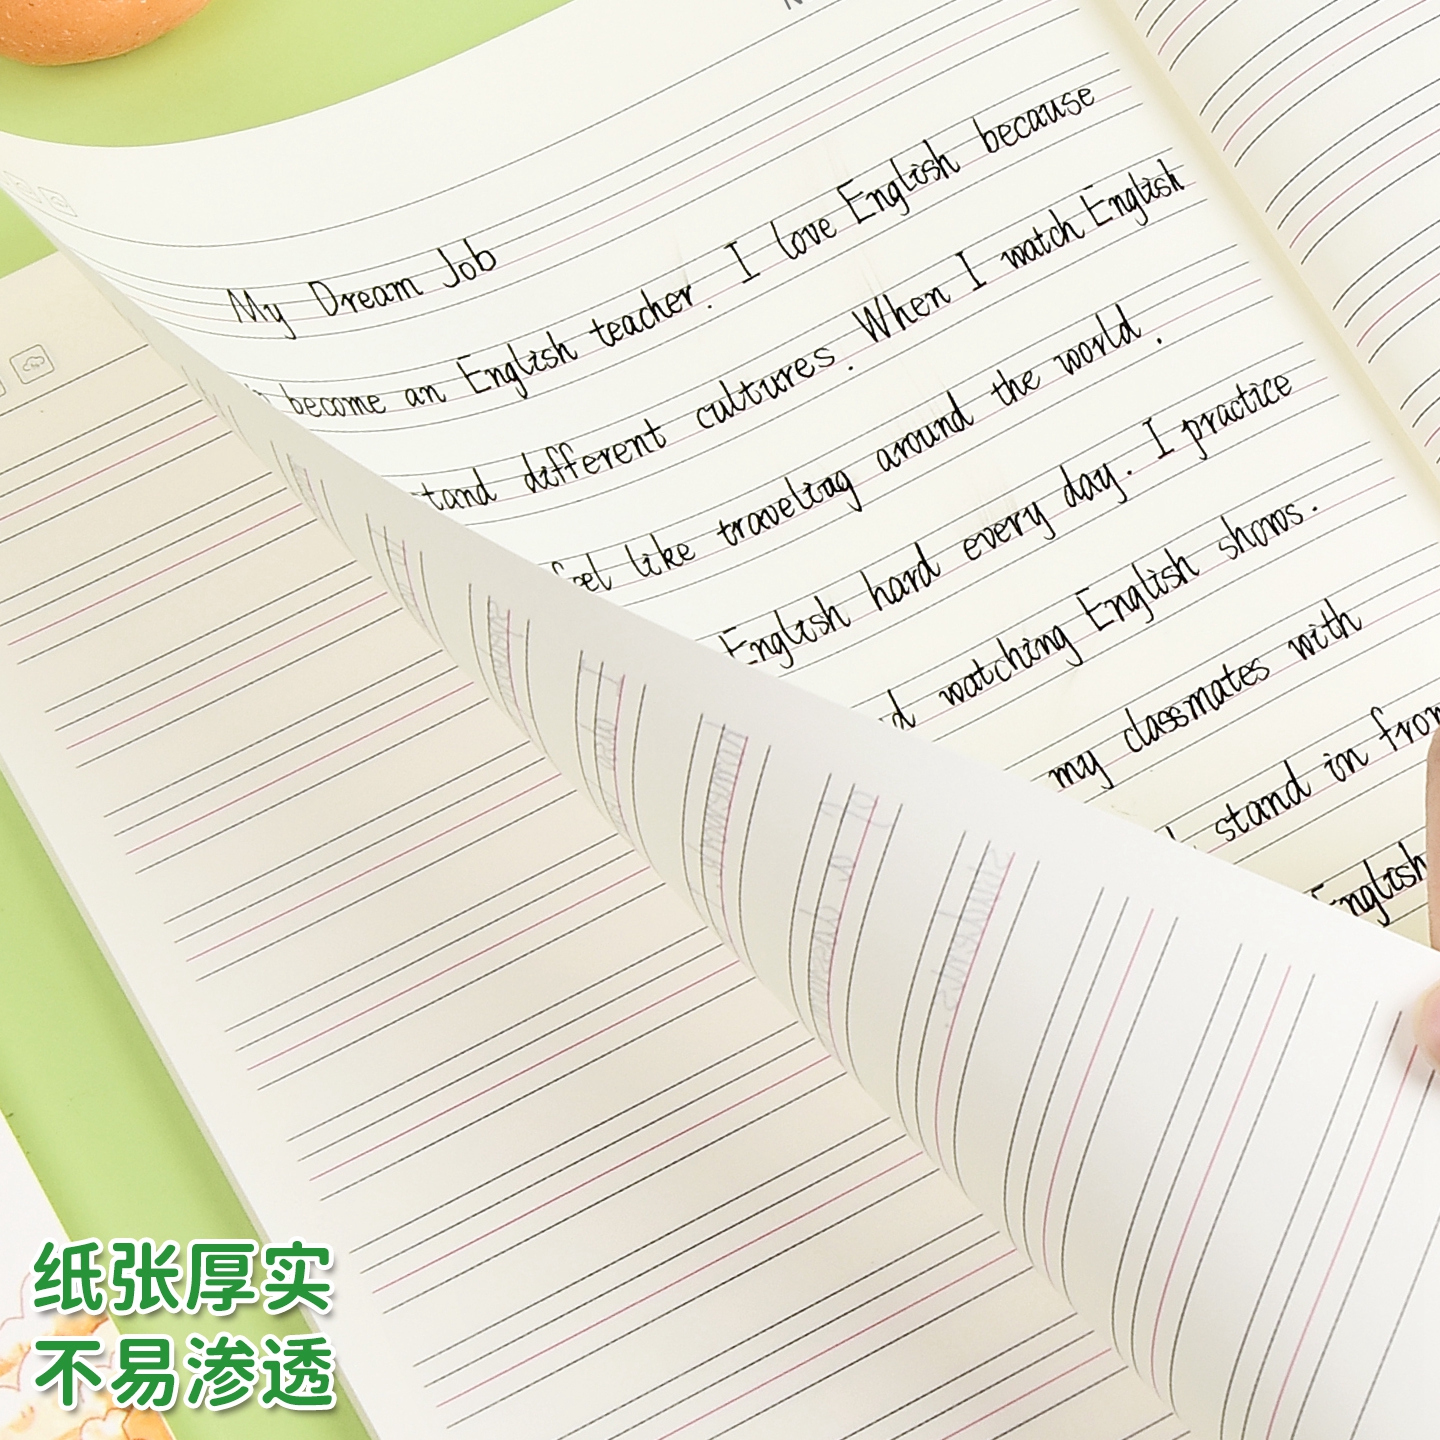 My Dream Job
become an English teacher. I love English because
different cultures. When I watch English
feel like traveling around the world.
English hard every day. I practice
watching English shows.
my classmates with
stand in
English
纸张厚实
不易渗透